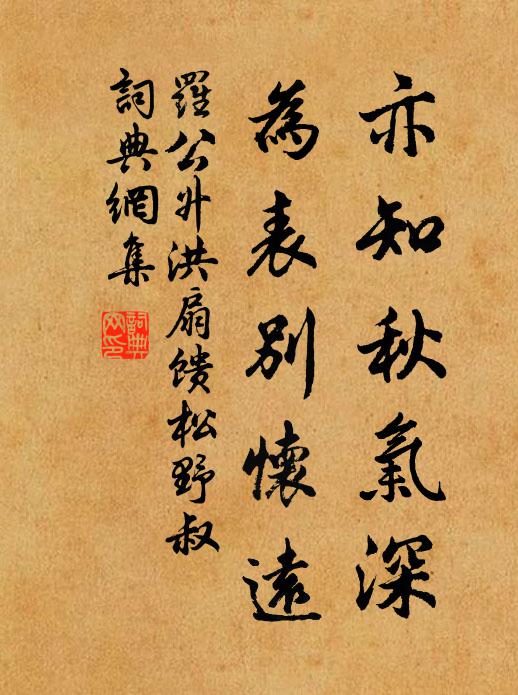 亦知秋氣深
為表別懷遠
羅公升洪扇馈松野叔
詞典網集
詞典网印